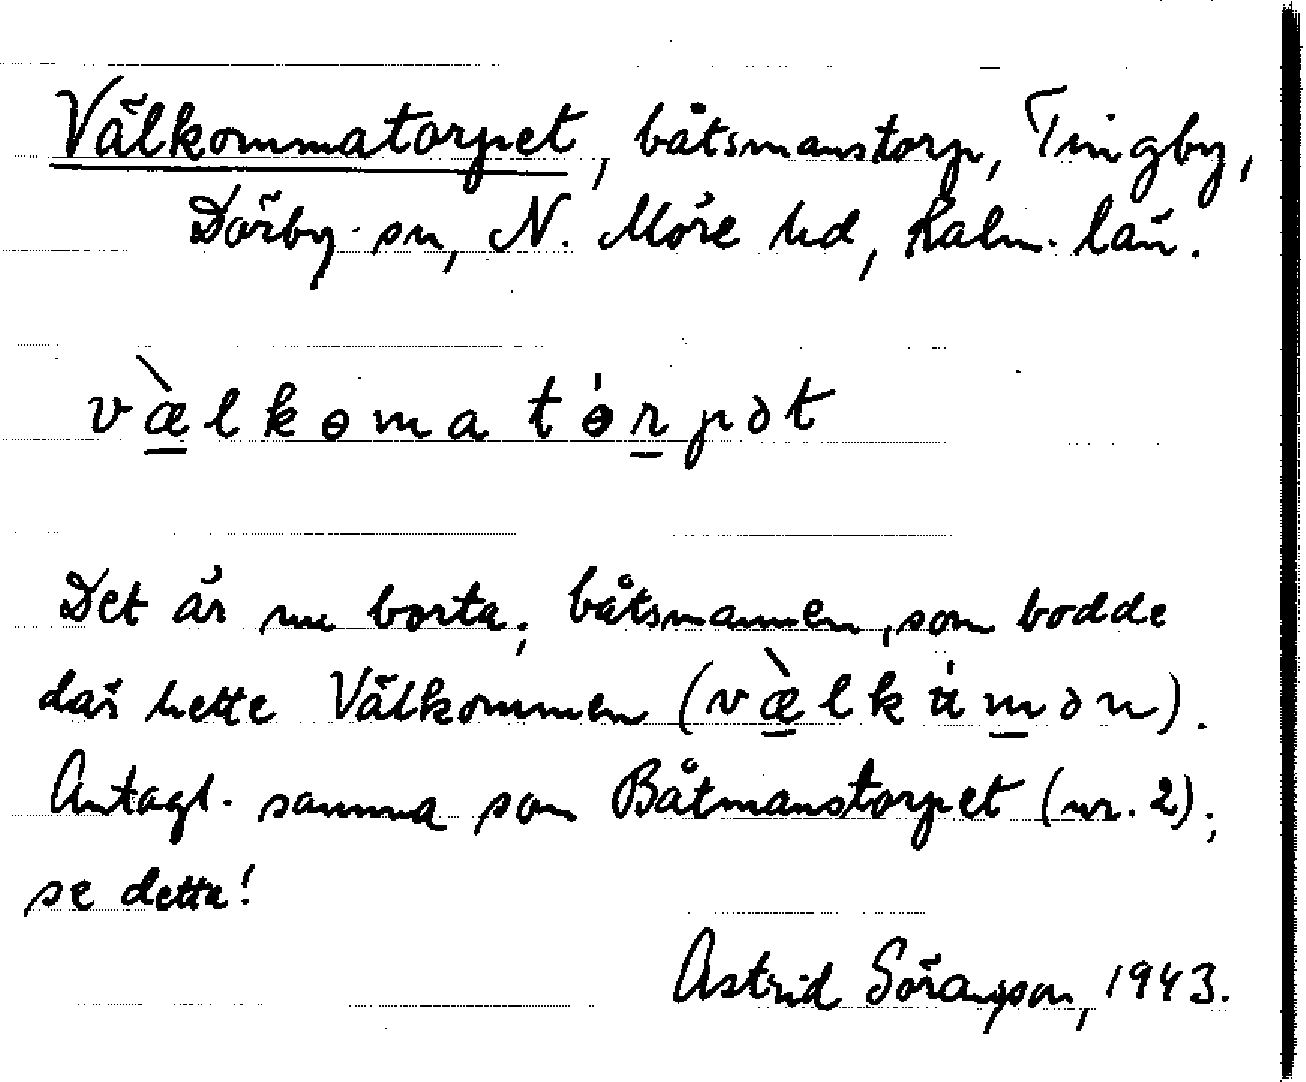 Välkommatorpet, båtsmanstorp, Tingby,
Dörby sn, N. Möre hd, Kalm. län.
v æ̀ l k ɵ m a t ɵ́ r p ə t
Det är nu borta; båtsmannen, som bodde
där hette Välkommen (v æ̀ l k u̇ m ə n).
Antagl. samma som Båtmanstorpet (nr. 2);
se detta!
Astrid Söranson, 1943.